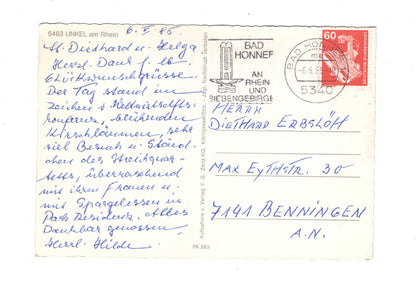 5463 UNKEL am Rhein
6. V 85
Lb. Diethard u. Helga
Herzl. Dank f. lb.
Glückwunschgrüsse.
Der Tag stand im
Zeichen v.
konferenz, blühenden
Kirschbäumen, sehr
viel Besuch u. Ständ.
chen des Streichquar-
tetts, überraschend
mit ihren Frauen u.
mit Spargelessen in
Park Residenz. Alles
Dankbar genossen.
Herzl. Hilde
Aufnahme u. Verlag F. G. Zeitz KG, Königssee/Obb.
FK 587
BAD
HONNEF
AM
RHEIN
UND
SIEBENGEBIRGE
BAD HONNEF
-6.5.85
5340
60
HERRN
DIETHARD ERBSLÖH
MAX EYTHSTR. 30
7141 BENNINGEN
A.N.